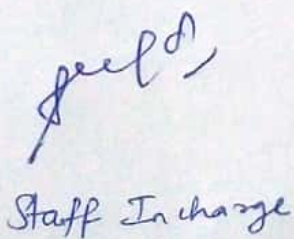 Staff Incharge